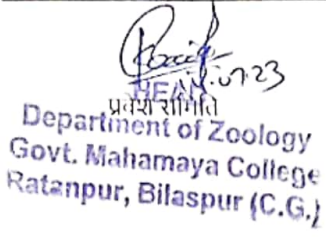 HEAD
प्रवेश समिति
Department of Zoology
Govt. Mahamaya College
Ratanpur, Bilaspur (C.G.)